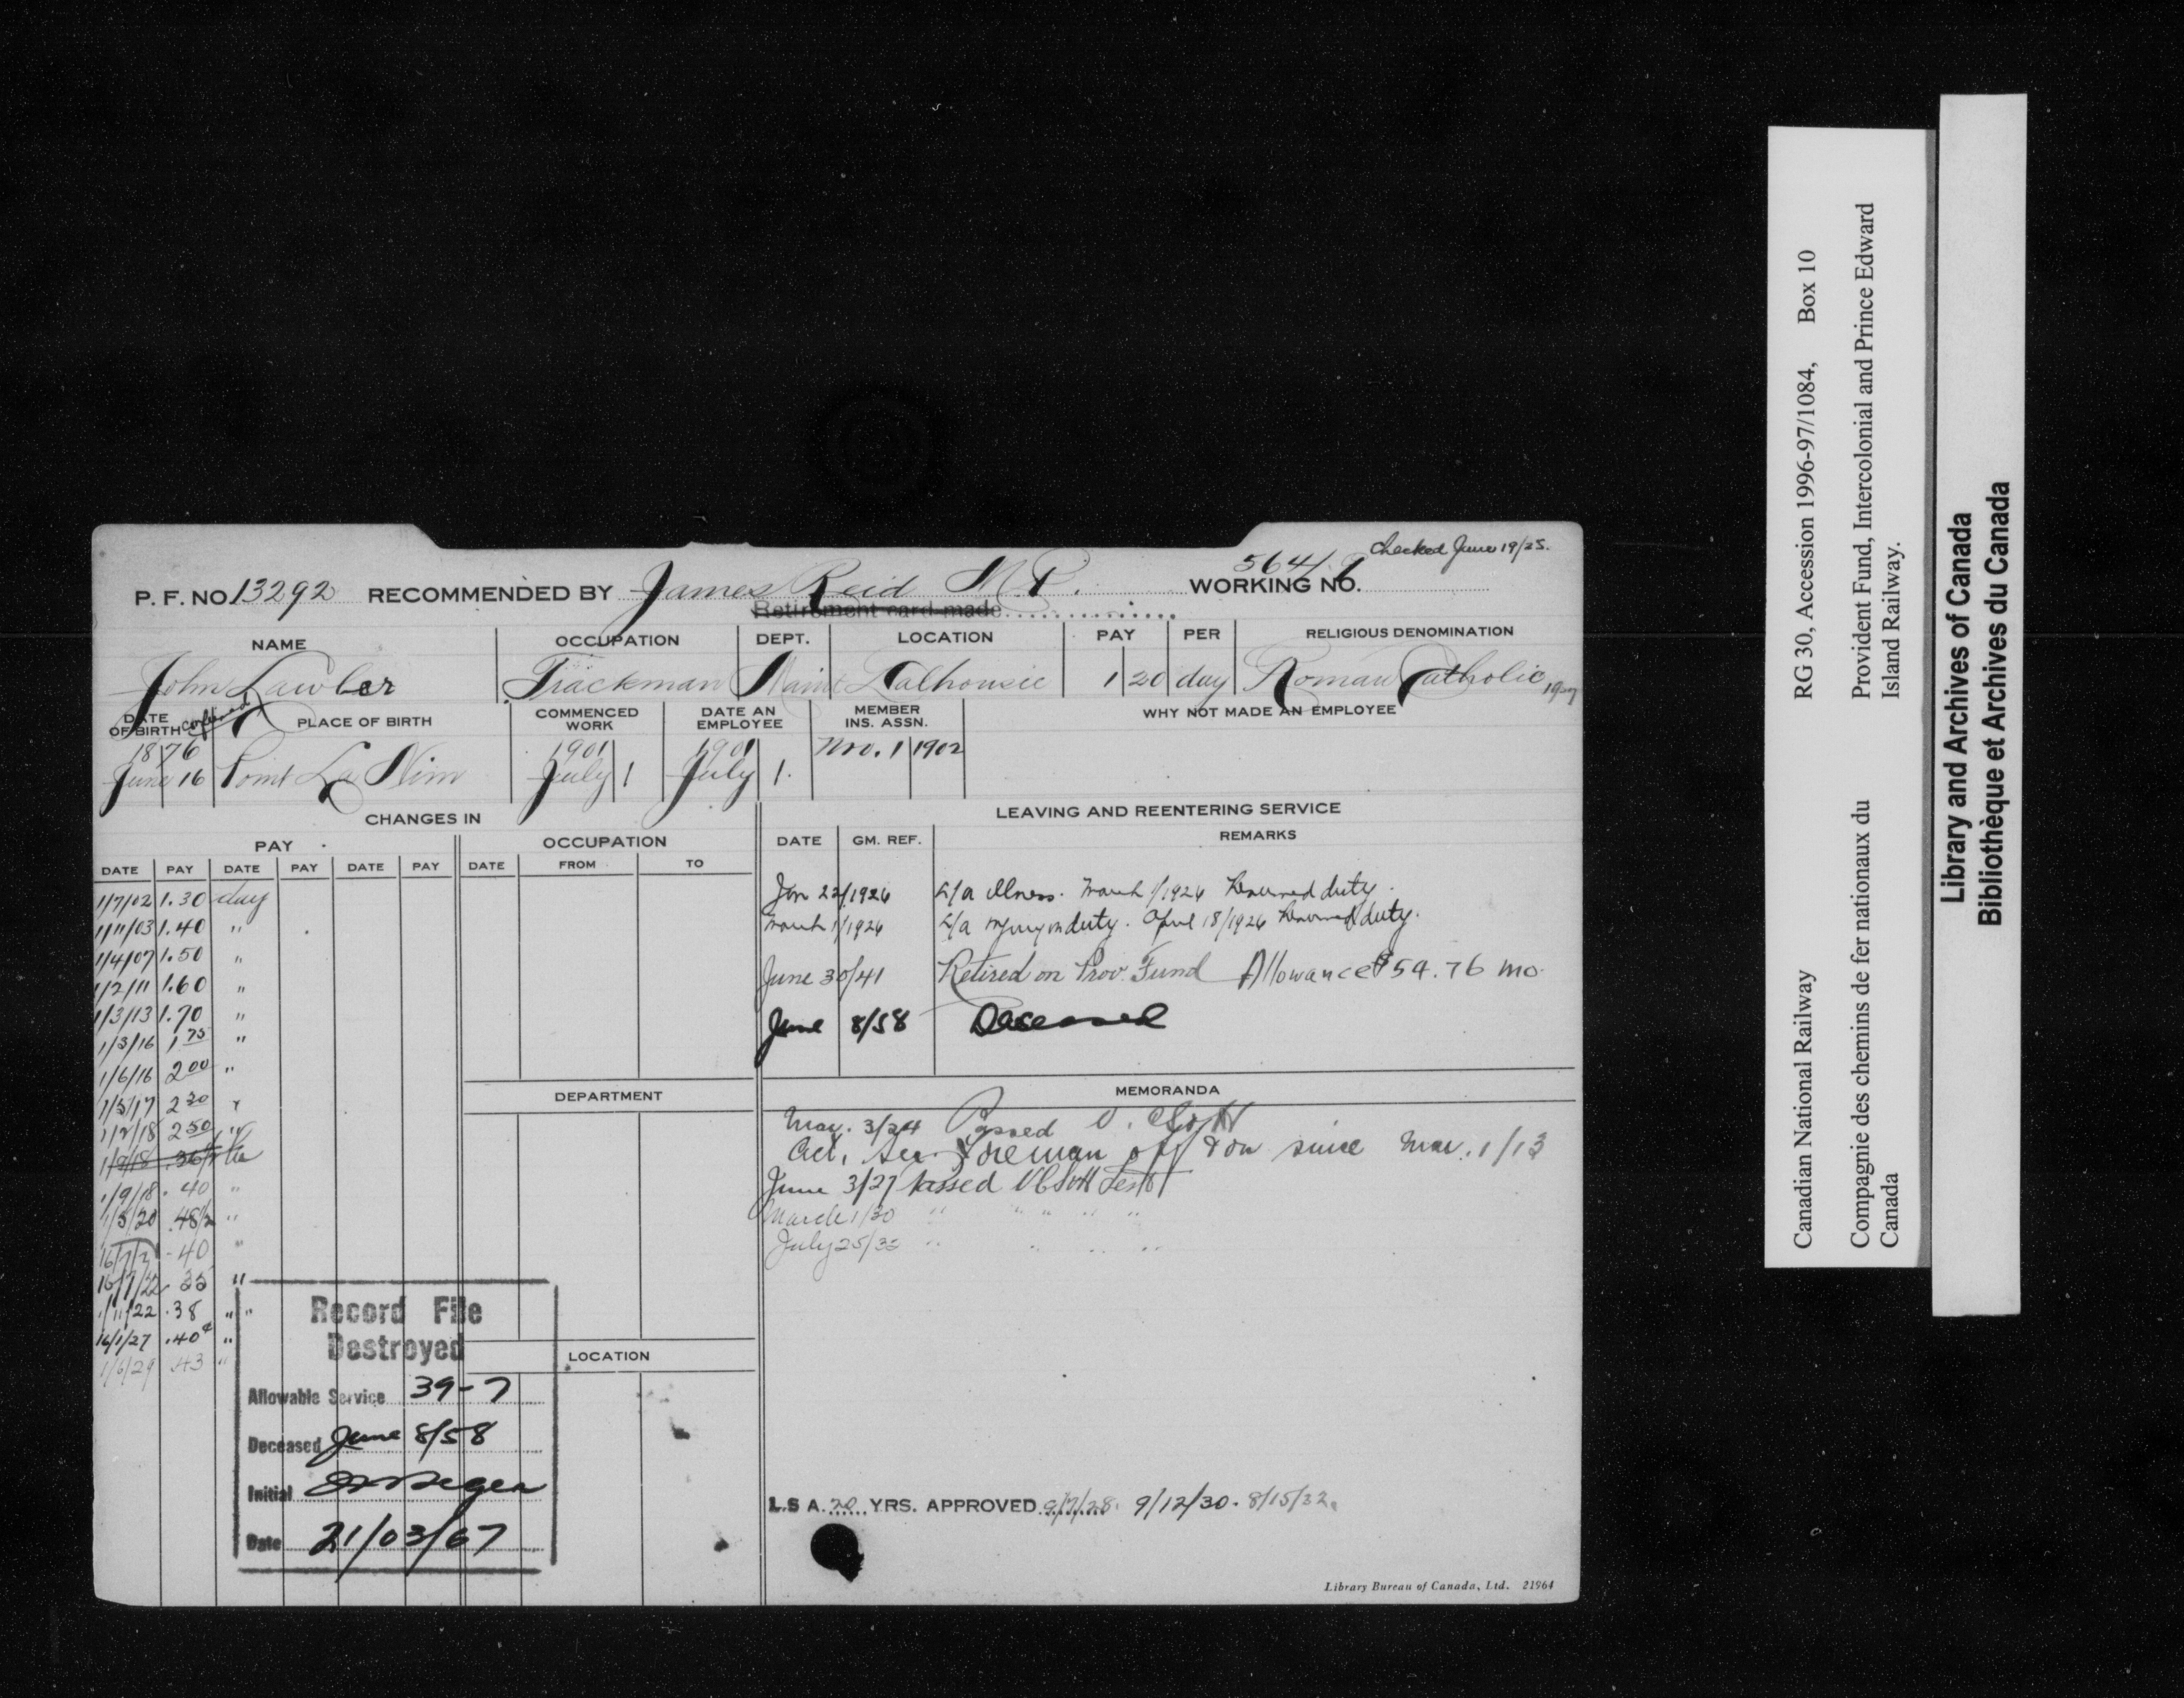 Checked June 19/25.
P. F. NO 13292 RECOMMENDED BY James Reid M.P. WORKING NO. 5641
Retirement card made
NAME OCCUPATION DEPT. LOCATION PAY PER RELIGIOUS DENOMINATION
John Lawler Trackman Maint Dalhousie 1 20 day Roman Catholic
DATE OF BIRTH PLACE OF BIRTH COMMENCED WORK DATE AN EMPLOYEE MEMBER INS. ASSN. WHY NOT MADE AN EMPLOYEE
1876 1901 1901 Nov. 1 1902
June 16 Point La Nim July 1 July 1.
CHANGES IN
LEAVING AND REENTERING SERVICE
PAY OCCUPATION
DATE GM. REF. REMARKS
DATE PAY DATE PAY DATE PAY DATE FROM TO
1/7/02 1.30 day
1/11/03 1.40 "
1/4/07 1.50 "
1/2/11 1.60 "
1/3/13 1.70 "
1/3/16 1 75 "
1/6/16 2 00 "
1/5/17 2 30 "
1/2/18 2 50 "
1/9/18 .36
1/9/18 .40 "
1/5/20 .48½ "
.40 "
16/7/22 .35 "
1/11/22 .38 " "
16/1/27 .40¢ "
1/6/29 .43 "
Jan 22/1926 L/a illness. March 1/1926 Resumed duty.
March 1/1926 L/a injury on duty. April 18/1926 Resumed duty.
June 30/41 Retired on Prov. Fund Allowance $54.76 mo.
June 8/58 Deceased
DEPARTMENT
MEMORANDA
May. 3/24 Passed
Act. Sec. Foreman off & on since Mar. 1/13
June 3/27 Passed Test
March 1/30 " " " " "
July 25/33 " " " "
LOCATION
Record File
Destroyed
Allowable Service 39-7
Deceased June 8/58
Initial
Date 21/03/67
L.S A. 20 YRS. APPROVED 9/7/28. 9/12/30. 8/15/32.
Library Bureau of Canada, Ltd. 21964
Canadian National Railway RG 30, Accession 1996-97/1084, Box 10
Compagnie des chemins de fer nationaux du Canada
Provident Fund, Intercolonial and Prince Edward Island Railway.
Library and Archives of Canada
Bibliothèque et Archives du Canada